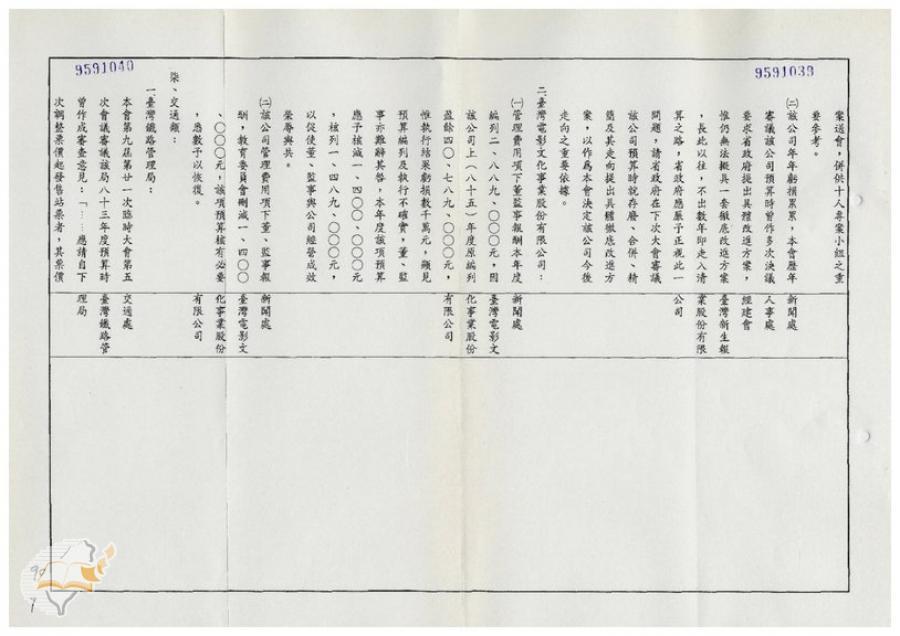 9591039
9591040
案送會，併供十人專案小組之重
要參考。
㈡該公司年年虧損累累，本會歷年
審議該公司預算時曾作多次決議
要求省政府提出具體改進方案，
惟仍無法擬具一套徹底改進方案
，長此以往，不出數年即走入清
算之路，省政府應嚴予正視此一
問題，請省政府在下次大會審議
該公司預算時就存廢、合併、精
簡及其走向提出具體徹底改進方
案，以作為本會決定該公司今後
走向之重要依據。
新聞處
人事處
經建會
臺灣新生報
業股份有限
公司
二、臺灣電影文化事業股份有限公司：
㈠管理費用項下董監事報酬本年度
編列二、八八九、〇〇〇元，因
該公司上（八十五）年度原編列
盈餘四〇、七八九、〇〇〇元，
惟執行結果虧損數千萬元，顯見
預算編列及執行不確實，董、監
事亦難辭其咎，本年度該項預算
應予核減一、四〇〇、〇〇〇元
，核列一、四八九、〇〇〇元，
以促使董、監事與公司經營成效
榮辱與共。
新聞處
臺灣電影文
化事業股份
有限公司
㈡該公司管理費用項下董、監事報
酬，教育委員會刪減一、四〇〇
、〇〇〇元，該項預算核有必要
，悉數予以恢復。
新聞處
臺灣電影文
化事業股份
有限公司
柒、交通類：
一、臺灣鐵路管理局：
本會第九屆第廿一次臨時大會第五
次會議審議該局八十三年度預算時
曾作成審查意見：「……應請自下
次調整票價起發售站票者，其票價
交通處
臺灣鐵路管
理局